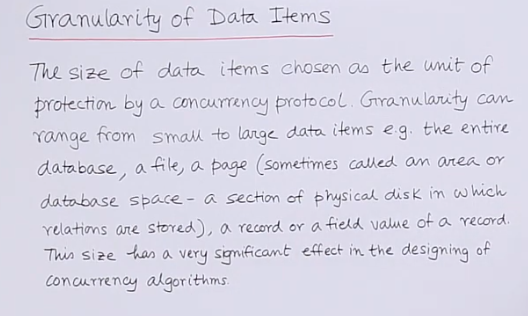 Granularity of Data Items
The size of data items chosen as the unit of
protection by a concurrency protocol. Granularity can
range from small to large data items e.g. the entire
database, a file, a page (sometimes called an area or
database space - a section of physical disk in which
relations are stored), a record or a field value of a record.
This size has a very significant effect in the designing of
concurrency algorithms.